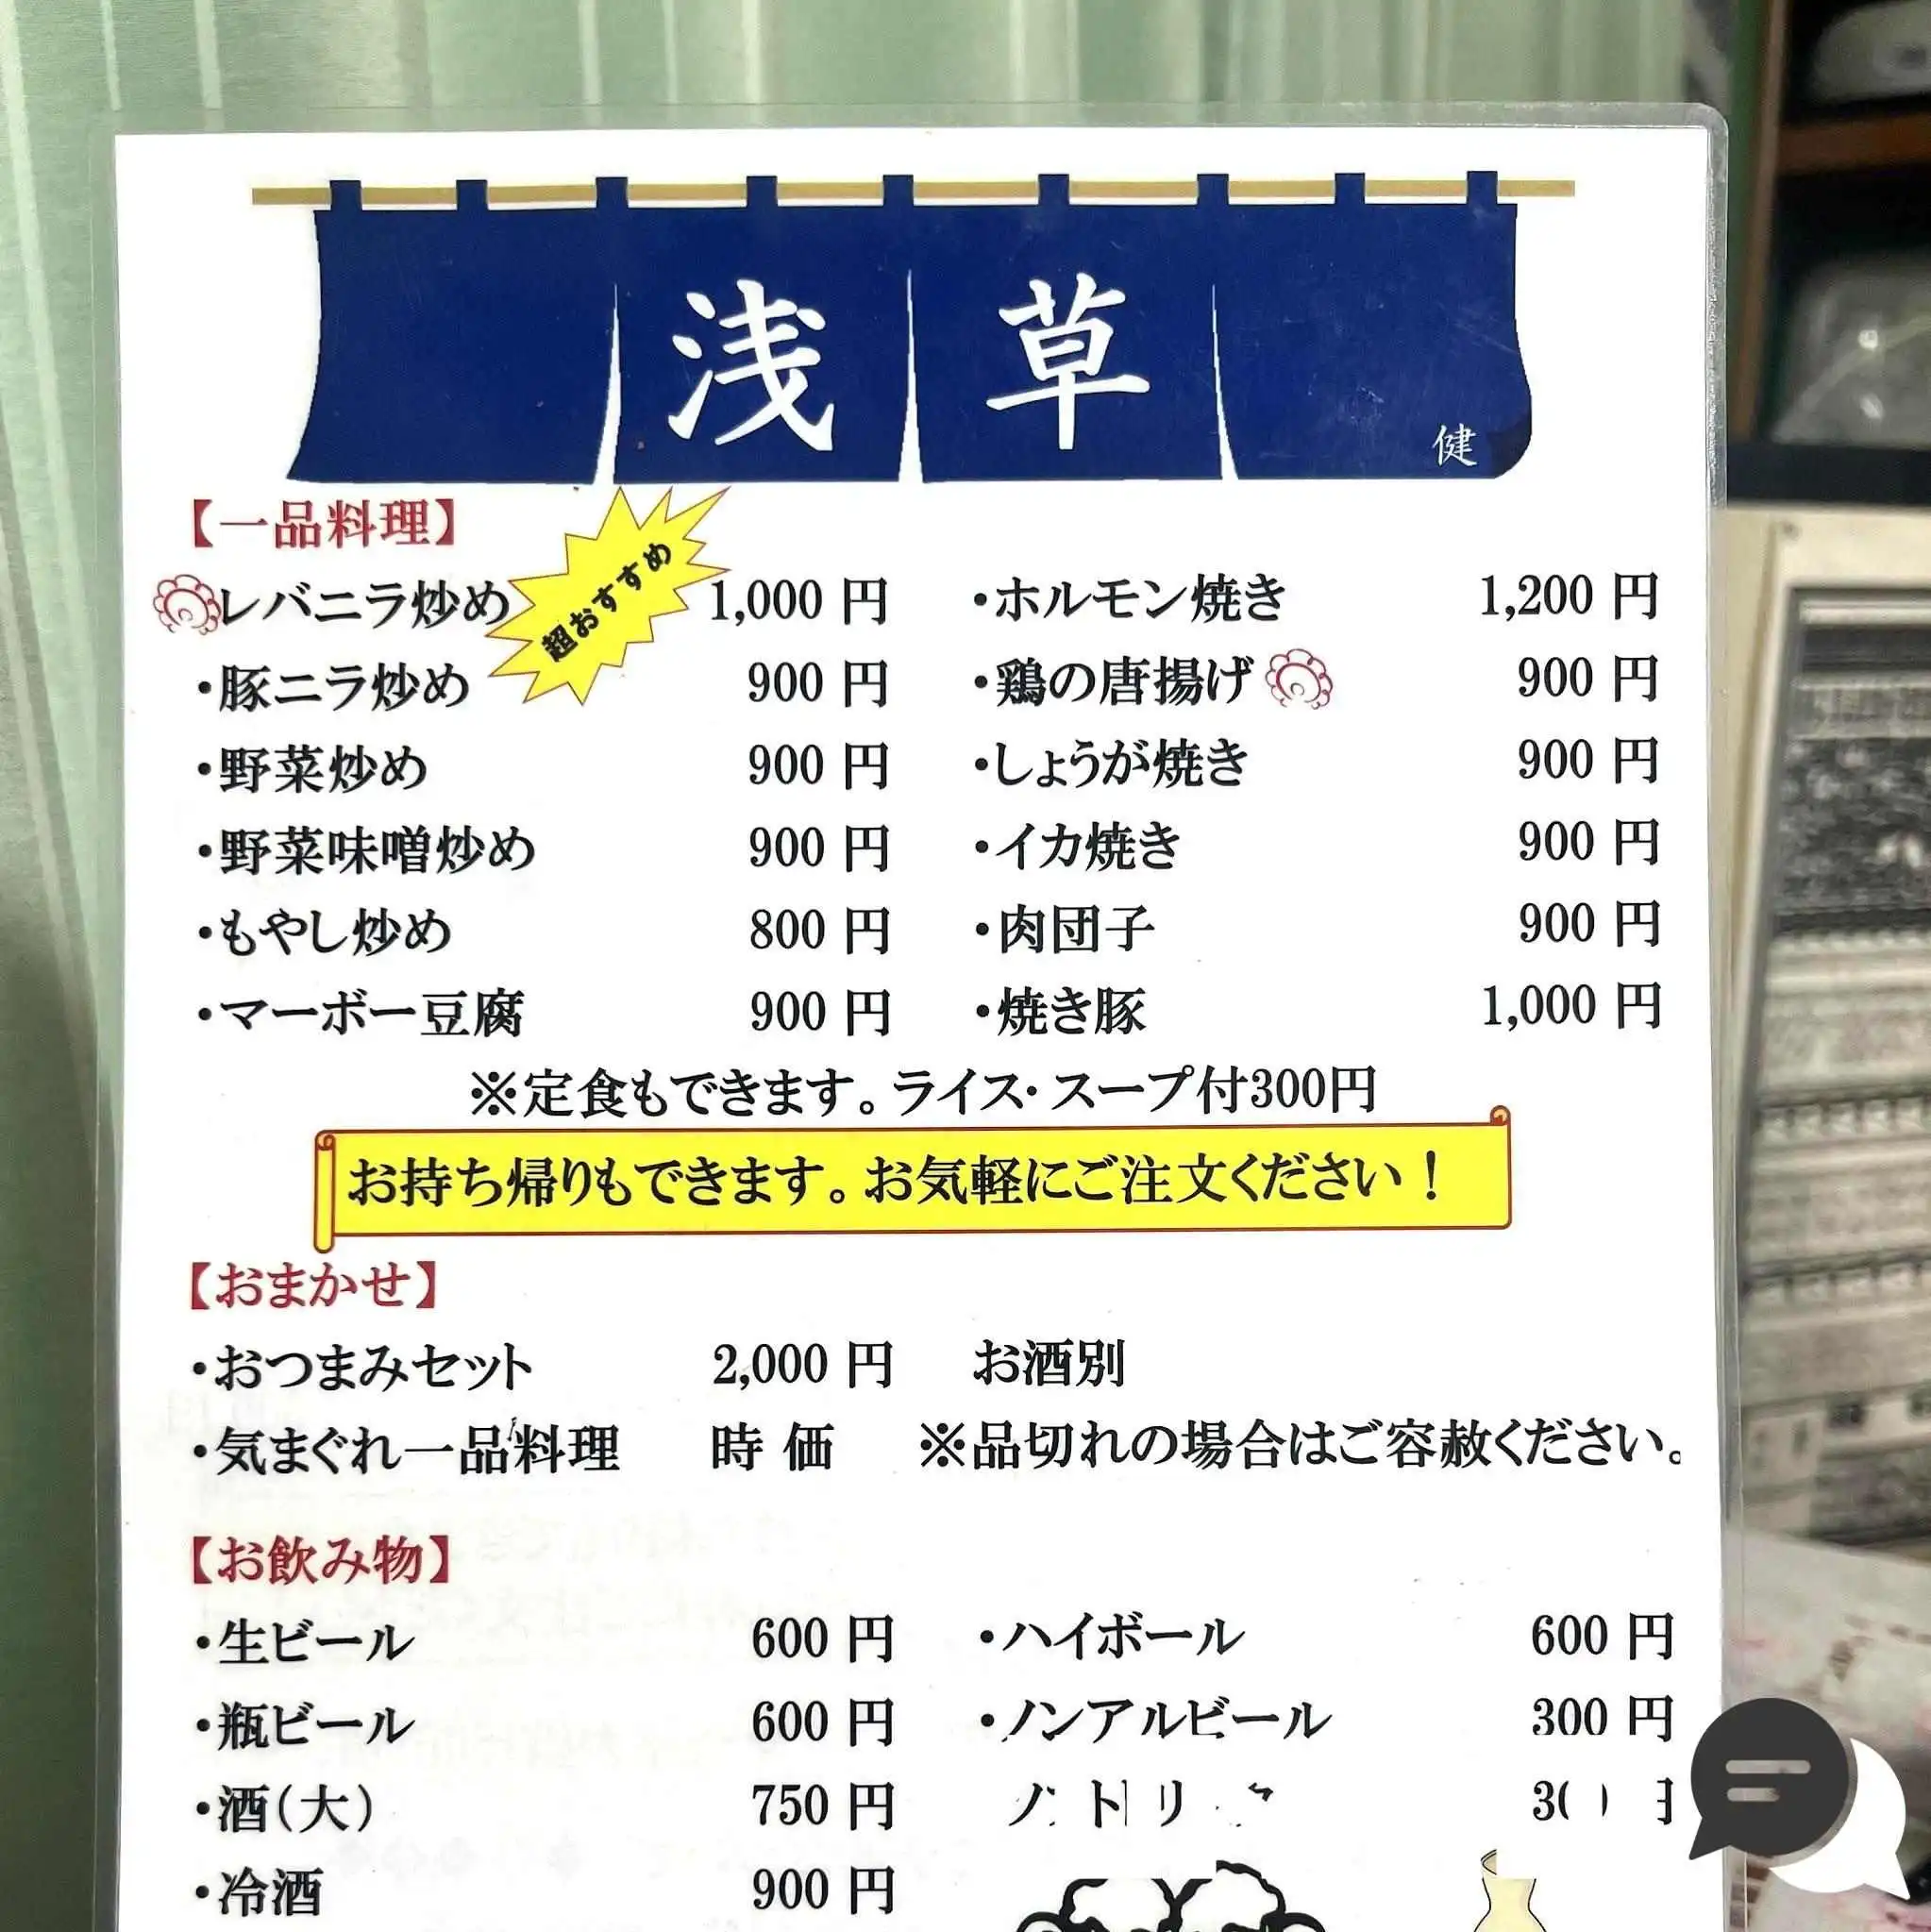 浅草
健
【一品料理】
超おすすめ
レバニラ炒め 1,000 円 ・ホルモン焼き 1,200 円
・豚ニラ炒め 900 円 ・鶏の唐揚げ 900 円
・野菜炒め 900 円 ・しょうが焼き 900 円
・野菜味噌炒め 900 円 ・イカ焼き 900 円
・もやし炒め 800 円 ・肉団子 900 円
・マーボー豆腐 900 円 ・焼き豚 1,000 円
※定食もできます。ライス・スープ付300円
お持ち帰りもできます。お気軽にご注文ください！
【おまかせ】
・おつまみセット 2,000 円 お酒別
・気まぐれ一品料理 時 価 ※品切れの場合はご容赦ください。
【お飲み物】
・生ビール 600 円 ・ハイボール 600 円
・瓶ビール 600 円 ・ノンアルビール 300 円
・酒（大） 750 円
・冷酒 900 円